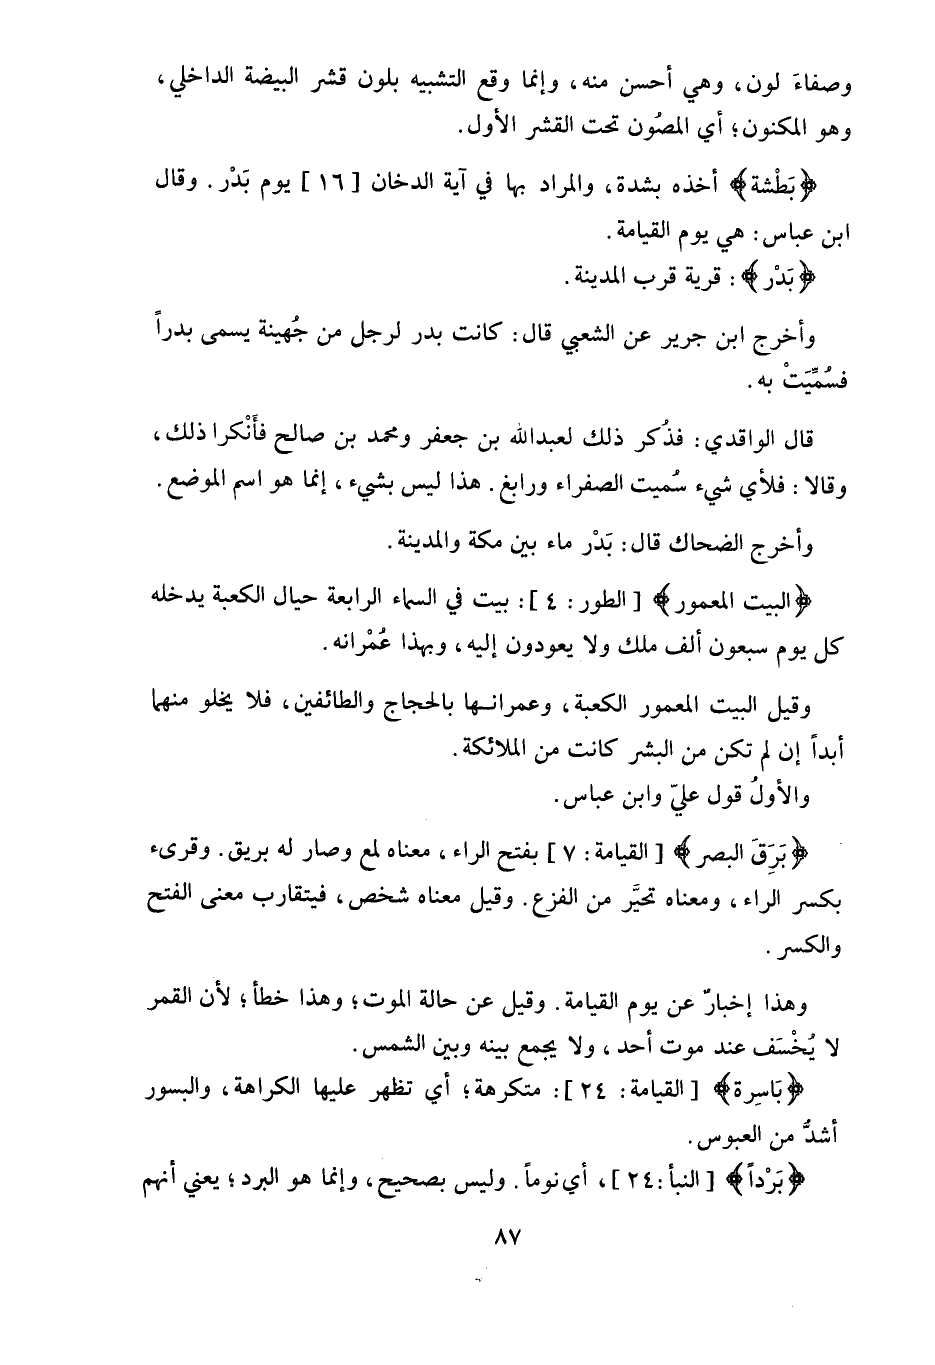 وصفاءَ لون، وهي أحسن منه، وإنما وقع التشبيه بلون قشر البيضة الداخلي،
وهو المكنون؛ أي المصُون تحت القشر الأول.
﴿بَطْشة﴾ أخذه بشدة، والمراد بها في آية الدخان [ ١٦ ] يوم بَدْر. وقال
ابن عباس: هي يوم القيامة.
﴿بَدْر﴾: قرية قرب المدينة.
وأخرج ابن جرير عن الشعبي قال: كانت بدر لرجل من جُهينة يسمى بدراً
فسُمِّيَتْ به.
قال الواقدي: فذُكر ذلك لعبدالله بن جعفر ومحمد بن صالح فأَنْكرا ذلك،
وقالا: فلأي شيء سُميت الصفراء ورابغ. هذا ليس بشيء، إنما هو اسم الموضع.
وأخرج الضحاك قال: بَدْر ماء بين مكة والمدينة.
﴿البيت المعمور﴾ [ الطور: ٤ ]: بيت في السماء الرابعة حيال الكعبة يدخله
كل يوم سبعون ألف ملك ولا يعودون إليه، وبهذا عُمْرانه.
وقيل البيت المعمور الكعبة، وعمرانـها بالحجاج والطائفين، فلا يخلو منهما
أبداً إن لم تكن من البشر كانت من الملائكة.
والأولُ قول عليّ وابن عباس.
﴿بَرِقَ البصر﴾ [ القيامة: ٧ ] بفتح الراء، معناه لمع وصار له بريق. وقرىء
بكسر الراء، ومعناه تحيَّر من الفزع. وقيل معناه شخص، فيتقارب معنى الفتح
والكسر.
وهذا إخبارّ عن يوم القيامة. وقيل عن حالة الموت؛ وهذا خطأ؛ لأن القمر
لا يُخْسَف عند موت أحد، ولا يجمع بينه وبين الشمس.
﴿بَاسِرة﴾ [ القيامة: ٢٤ ]: متكرهة؛ أي تظهر عليها الكراهة، والبسور
أشدُّ من العبوس.
﴿بَرْداً﴾ [ النبأ: ٢٤ ]، أي نوماً. وليس بصحيح، وإنما هو البرد؛ يعني أنهم
٨٧